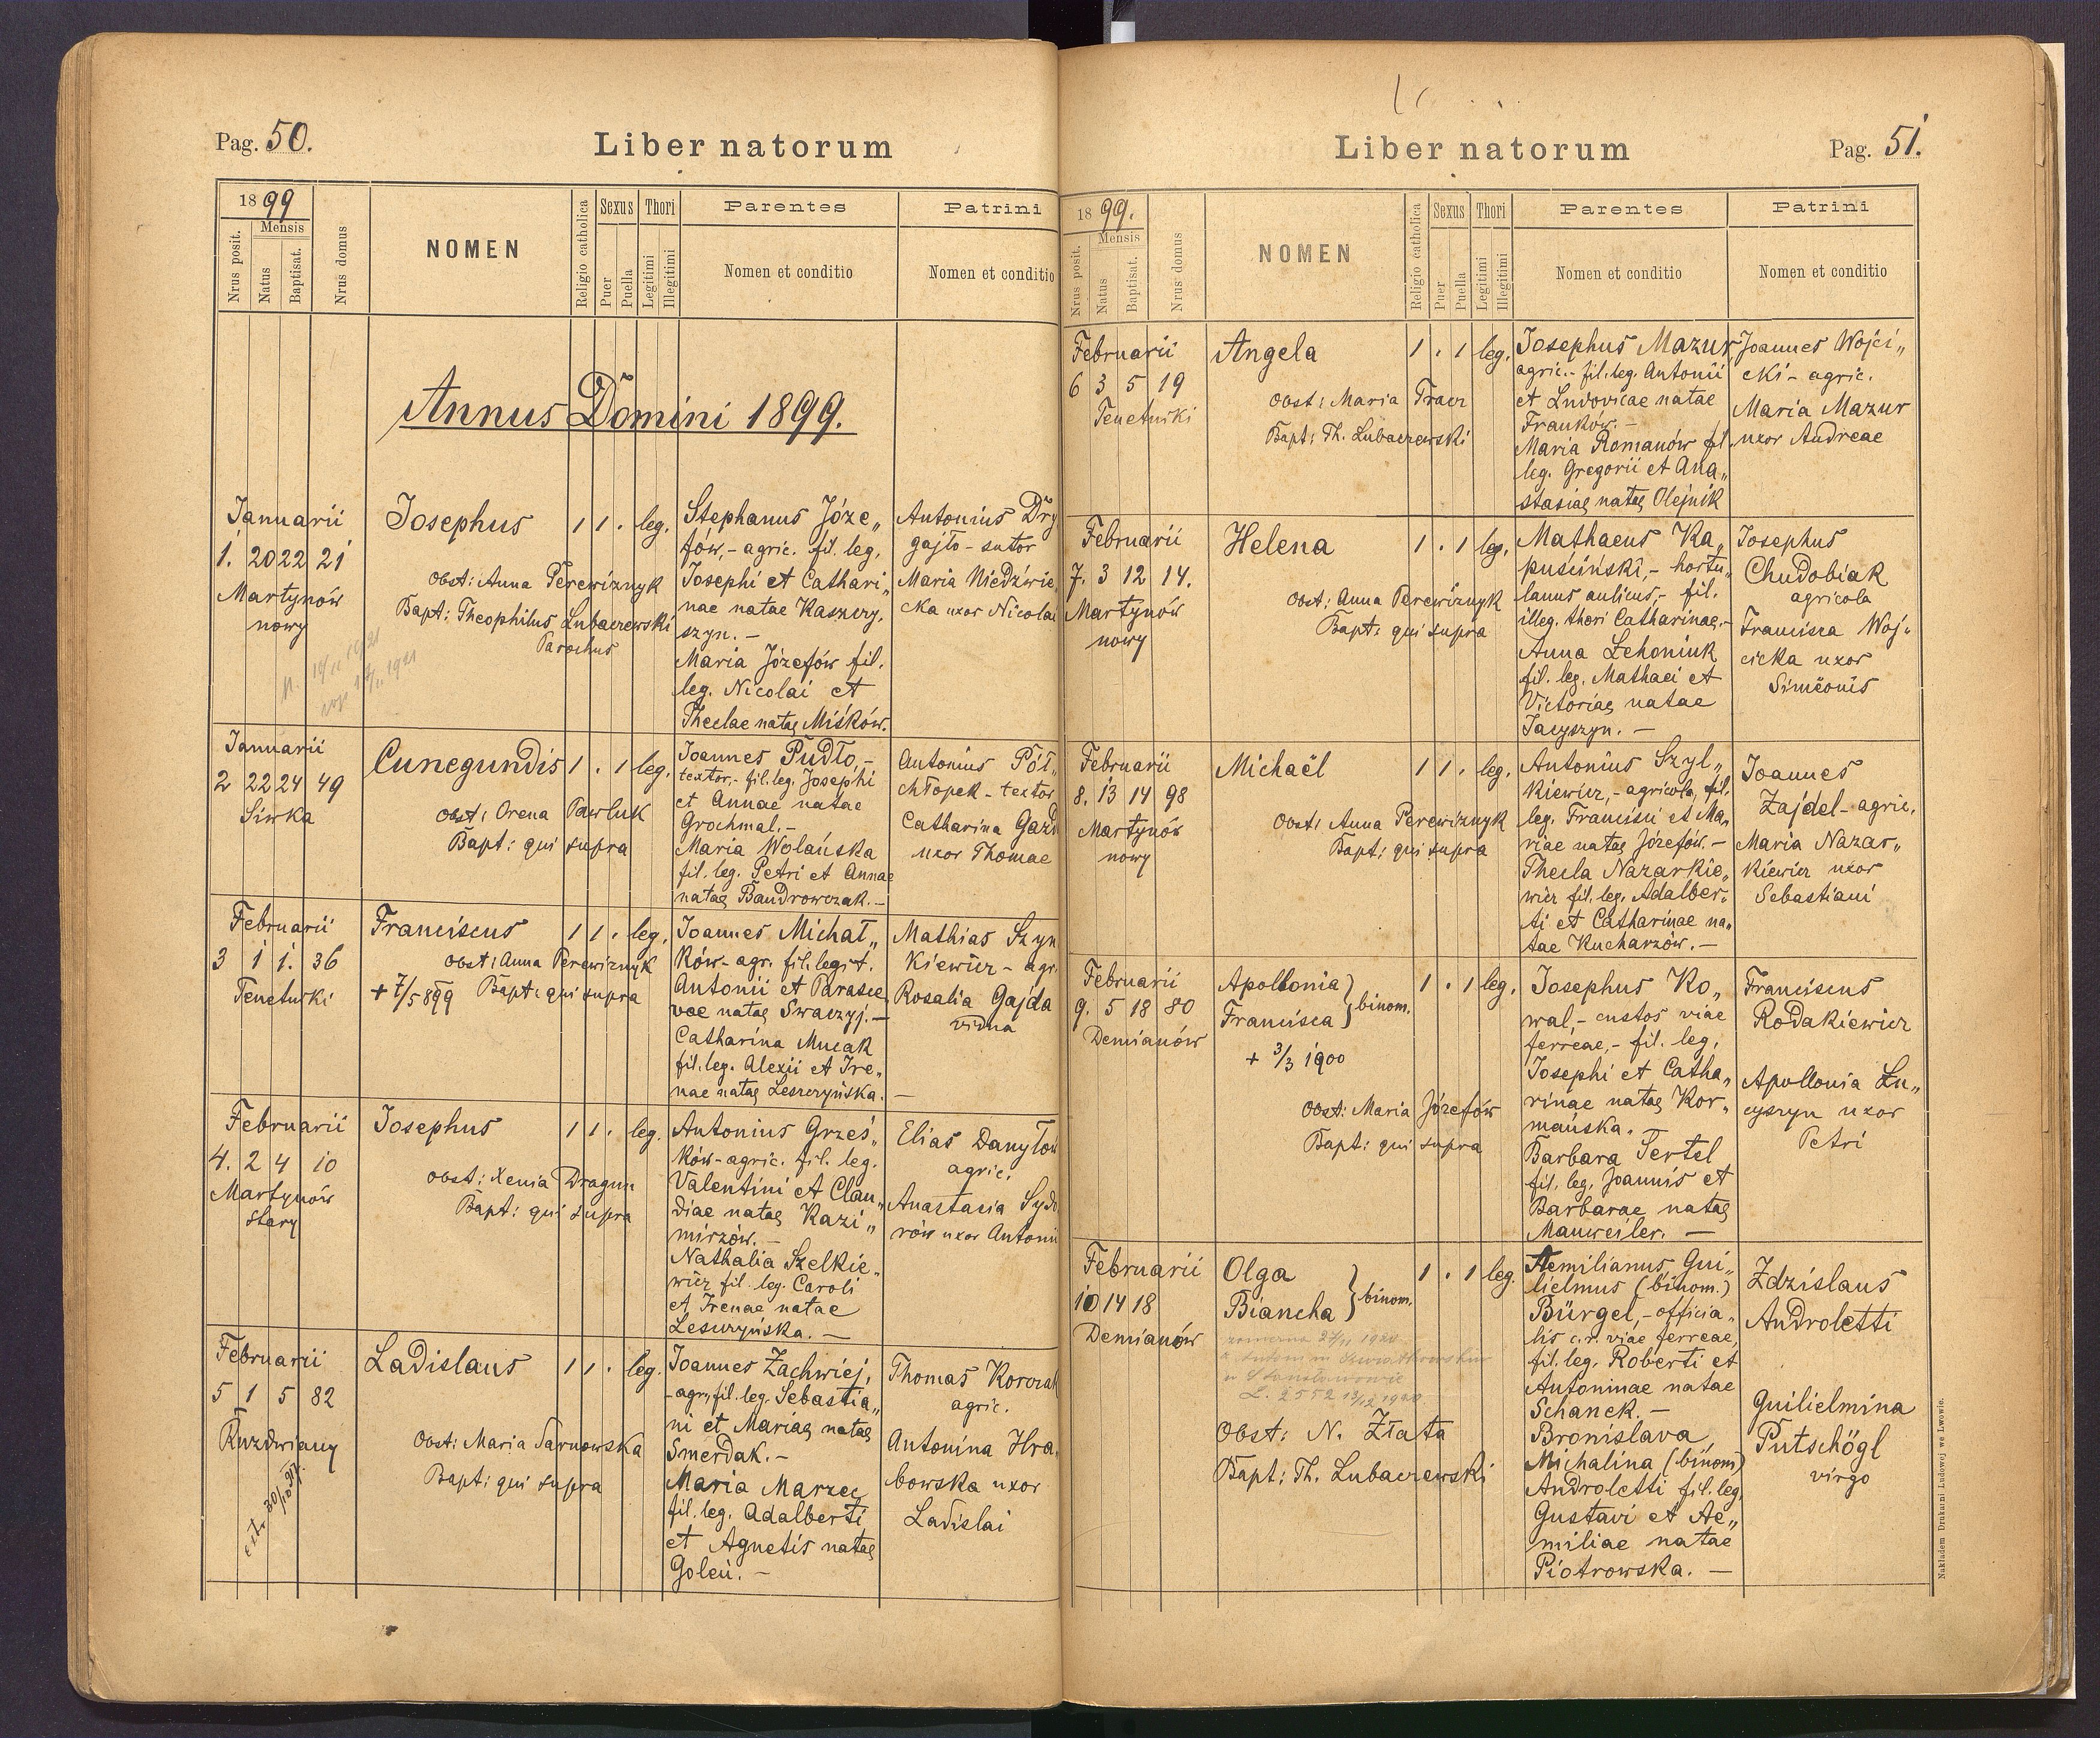 Pag. 50.
Liber natorum
1899
Mensis
Nrus posit.
Natus
Baptisat.
Nrus domus
NOMEN
Religio catholica
Sexus
Puer
Puella
Thori
Legitimi
Illegitimi
Parentes
Nomen et conditio
Patrini
Nomen et conditio
Annus Domini 1899.
Januarii
1. 20 22 21
Martynów
nowy
Josephus
Obst: Anna Perewiznyk
Bapt: Theophilus Lubaczewski
Parochus
1 1 . leg.
Stephanus Józe„
fów,- agric. fil. leg.
Josephi et Cathari„
nae natae Kaszczy„
szyn. -
Maria Józefów fil.
leg. Nicolai et
Theclae natae Miśków.
Antonius Dry
gajło - sutor
Maria Niedźwie„
cka uxor Nicolai
Januarii
2 22 24 49
Siwka
Cunegundis
Obst: Orena Pawluk
Bapt: qui supra
1 . 1 leg.
Joannes Pudło,-
textor,- fil. leg. Josephi
et Annae natae
Grochmal.-
Maria Wolańska
fil. leg. Petri et Annae
natae Bandrowczak.-
Antonius Pół„
chłopek - textor
Catharina Gazd
uxor Thomae
Februarii
3 1 1. 36
Tenetnski
Franciscus
Obst: Anna Perewiznyk
+ 7/5 899 Bapt: qui supra
1 1 . leg.
Joannes Michał„
ków - agr. fil. legit.
Antonii et Parasce„
vae natae Swaczyj.-
Catharina Mucak
fil. leg. Alexii et Ire„
nae natae Leszczyńska. -
Mathias Szyn
kiewicz - agr.
Rosalia Gajda
vidua
Februarii
4. 2 4 10
Martynów
stary
Josephus
Obst: Xenia Dragun
Bapt: qui supra
1 1 . leg.
Antonius Grześ„
ków - agric. fil. leg.
Valentini et Clau„
diae natae Kazi„
mirzów. -
Nathalia Szelkie„
wicz fil. leg. Caroli
et Irenae natae
Leszczyńska. -
Elias Danyłów
agric.
Anastasia Sydo
rów uxor Antonii
Februarii
5 1 5 82
Kuzdwiany
Ladislaus
Obst: Maria Sarnowska
Bapt: qui supra
1 1 . leg.
Joannes Zachwiej,
- agr., fil. leg. Sebastia„
ni et Mariae natae
Smerdak. -
Maria Marzec
fil. leg. Adalberti
et Agnetis natae
Goleń. -
Thomas Korczak
agric.
Antonina Hra„
bowska uxor
Ladislai
Liber natorum
Pag. 51.
1899.
Mensis
Nrus posit.
Natus
Baptisat.
Nrus domus
NOMEN
Religio catholica
Sexus
Puer
Puella
Thori
Legitimi
Illegitimi
Parentes
Nomen et conditio
Patrini
Nomen et conditio
Februarii
6 3 5 19
Tenetniki
Angela
Obst: Maria Tracz
Bapt: Th. Lubaczewski
1 . 1 leg.
Josephus Mazur
agric.- fil. leg. Antonii
et Ludovicae natae
Franków. -
Maria Romanów fil.
leg. Gregorii et Ana„
stasiae natae Olejnik
Joannes Wojci„
cki - agric.
Maria Mazur
uxor Andreae
Februarii
7. 3 12 14.
Martynów
nowy
Helena
Obst: Anna Perewiznyk
Bapt: qui supra
1 . 1 leg.
Mathaeus Ka„
puściński,- hortu„
lanus aulicus,- fil.
illeg. thori Catharinae.-
Anna Lehoniuk
fil. leg. Mathaei et
Victoriae natae
Jacyszyn. -
Josephus
Chudobiak
agricola
Francisca Woj„
cicka uxor
Simeonis
Februarii
8. 13 14 98
Martynów
nowy
Michaël
Obst: Anna Perewiznyk
Bapt: qui supra
1 1 . leg.
Antonius Szyl„
kiewicz,- agricola, fil.
leg. Francisci et Ma„
riae natae Józefów. -
Thecla Nazarkie„
wicz fil. leg. Adalber„
ti et Catharinae na„
tae Kucharzów. -
Joannes
Zajdel - agric.
Maria Nazar„
kiewicz uxor
Sebastiani
Februarii
9. 5 18 80
Demianów
Apollonia
Francisca } binom.
+ 3/3 1900
Obst: Maria Józefów
Bapt: qui supra
1 . 1 leg.
Josephus Ko„
wal,- custos viae
ferreae,- fil. leg.
Josephi et Catha„
rinae natae Kor„
mańska.
Barbara Tertel
fil. leg. Joannis et
Barbarae natae
Mauweiler. -
Franciscus
Rodakiewicz
Apollonia Lu„
cyszyn uxor
Petri
Februarii
10 14 18
Demianów
Olga
Biancha } binom.
L. 2552
Obst: N. Złata
Bapt: Th. Lubaczewski
1 . 1 leg.
Aemilianus Gui„
lielmus (binom.)
Bürgel,- officia„
lis c.r. viae ferreae,
fil. leg. Roberti et
Antoninae natae
Schanek. -
Bronislava
Michalina (binom)
Androletti fil. leg.
Gustavi et Ae„
miliae natae
Piotrowska. -
Zdzislaus
Androletti
Guilielmina
Putschögl
virgo
Nakładem Drukarni Ludowej we Lwowie.